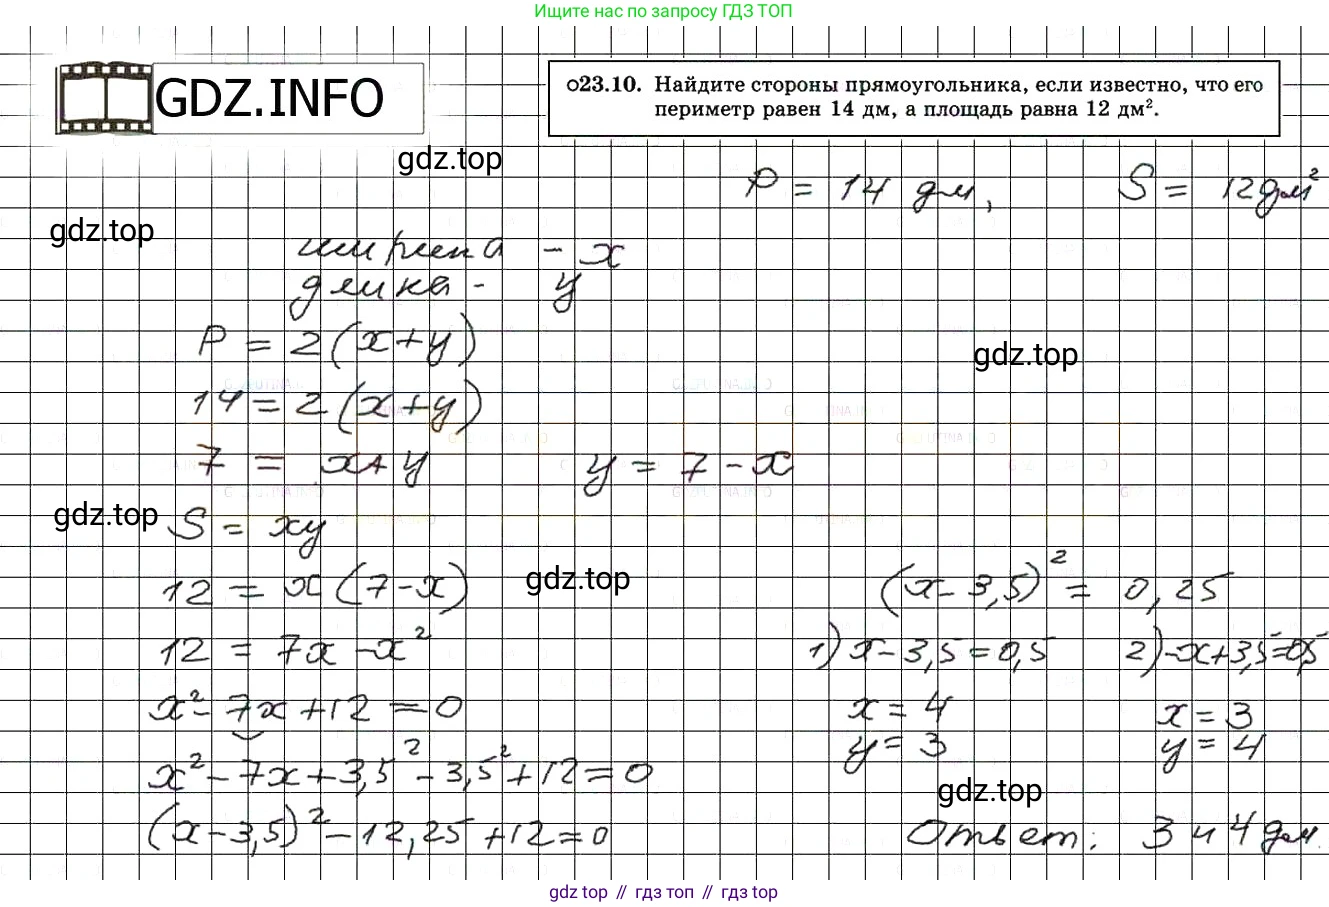 Ищите нас по запросу ГДЗ ТОП
GDZ.INFO
○23.10. Найдите стороны прямоугольника, если известно, что его
периметр равен 14 дм, а площадь равна 12 дм².
gdz.top
P = 14 дм, S = 12 дм²
gdz.top
ширина - x
длина - y
P = 2(x+y)
gdz.top
14 = 2(x+y)
7 = x+y y = 7 - x
gdz.top
S = xy
gdz.top
12 = x(7-x)
12 = 7x - x²
x² - 7x + 12 = 0
x² - 7x + 3,5² - 3,5² + 12 = 0
(x - 3,5)² - 12,25 + 12 = 0
(x - 3,5)² = 0,25
1) x - 3,5 = 0,5 2) -x + 3,5 = 0,5
x = 4 x = 3
y = 3 y = 4
gdz.top
Ответ: 3 и 4 дм.
gdz top // гдз топ // gdz top